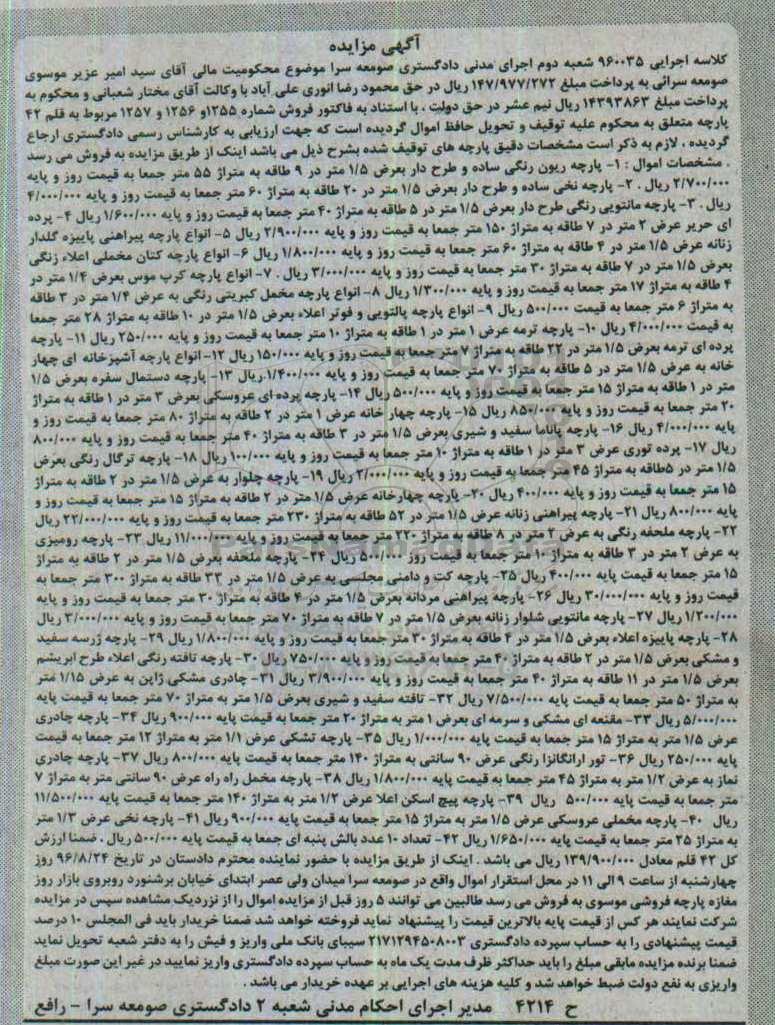 آگهی مزایده
کلاسه اجرایی ۹۶۰۰۳۵ شعبه دوم اجرای مدنی دادگستری صومعه سرا موضوع محکومیت مالی آقای سید امیر عزیز موسوی
صومعه سرائی به پرداخت مبلغ ۱۴۷/۹۷۷/۲۷۲ ریال در حق محمود رضا انوری علی آباد با وکالت آقای مختار شعبانی و محکوم به
پرداخت مبلغ ۱۴۳۹۳۸۶۳ ریال نیم عشر در حق دولت ، با استناد به فاکتور فروش شماره ۱۲۵۵و ۱۲۵۶ و ۱۲۵۷ مربوط به قلم ۴۲
پارچه متعلق به محکوم علیه توقیف و تحویل حافظ اموال گردیده است که جهت ارزیابی به کارشناس رسمی دادگستری ارجاع
گردیده ، لازم به ذکر است مشخصات دقیق پارچه های توقیف شده بشرح ذیل می باشد اینک از طریق مزایده به فروش می رسد
. مشخصات اموال : ۱- پارچه ریون رنگی ساده و طرح دار بعرض ۱/۵ متر در ۹ طاقه به متراژ ۵۵ متر جمعا به قیمت روز و پایه
۲/۷۰۰/۰۰۰ ریال . ۲- پارچه نخی ساده و طرح دار بعرض ۱/۵ متر در ۲۰ طاقه به متراژ ۶۰ متر جمعا به قیمت روز و پایه ۴/۰۰۰/۰۰۰
ریال . ۳- پارچه مانتویی رنگی طرح دار بعرض ۱/۵ متر در ۵ طاقه به متراژ ۴۰ متر جمعا به قیمت روز و پایه ۱/۶۰۰/۰۰۰ ریال ۴- پرده
ای حریر عرض ۲ متر در ۷ طاقه به متراژ ۱۵۰ متر جمعا به قیمت روز و پایه ۲/۹۰۰/۰۰۰ ریال ۵- انواع پارچه پیراهنی پاییزه گلدار
زنانه عرض ۱/۵ متر در ۴ طاقه به متراژ ۶۰ متر جمعا به قیمت روز و پایه ۱/۸۰۰/۰۰۰ ریال ۶- انواع پارچه کتان مخملی اعلاء رنگی
بعرض ۱/۵ متر در ۷ طاقه به متراژ ۳۰ متر جمعا به قیمت روز و پایه ۳/۰۰۰/۰۰۰ ریال . ۷- انواع پارچه کرپ موس بعرض ۱/۴ متر در
۴ طاقه به متراژ ۱۷ متر جمعا به قیمت روز و پایه ۱/۳۰۰/۰۰۰ ریال ۸- انواع پارچه مخمل کبریتی رنگی به عرض ۱/۴ متر در ۳ طاقه
به متراژ ۶ متر جمعا به قیمت ۵۰۰/۰۰۰ ریال ۹- انواع پارچه پالتویی و فوتر اعلاء بعرض ۱/۵ متر در ۱۰ طاقه به متراژ ۲۸ متر جمعا
به قیمت ۴/۰۰۰/۰۰۰ ریال ۱۰- پارچه ترمه عرض ۱ متر در ۱ طاقه به متراژ ۱۰ متر جمعا به قیمت روز و پایه ۲۵۰/۰۰۰ ریال ۱۱- پارچه
پرده ای ترمه بعرض ۱/۵ متر در ۲۲ طاقه به متراژ ۷ متر جمعا به قیمت روز و پایه ۱۵۰/۰۰۰ ریال ۱۲-انواع پارچه آشپزخانه ای چهار
خانه به عرض ۱/۵ متر در ۵ طاقه به متراژ ۷۰ متر جمعا به قیمت روز و پایه ۱/۴۰۰/۰۰۰ ریال ۱۳- پارچه دستمال سفره بعرض ۱/۵
متر در ۱ طاقه به متراژ ۱۵ متر جمعا به قیمت روز و پایه ۵۰۰/۰۰۰ ریال ۱۴- پارچه پرده ای عروسکی بعرض ۳ متر در ۱ طاقه به متراژ
۲۰ متر جمعا به قیمت روز و پایه ۸۵۰/۰۰۰ ریال ۱۵- پارچه چهار خانه عرض ۱ متر در ۲ طاقه به متراژ ۸۰ متر جمعا به قیمت روز و
پایه ۴/۰۰۰/۰۰۰ ریال ۱۶- پارچه پاناما سفید و شیری بعرض ۱/۵ متر در ۳ طاقه به متراژ ۴۰ متر جمعا به قیمت روز و پایه ۸۰۰/۰۰۰
ریال ۱۷- پرده توری عرض ۳ متر در ۱ طاقه به متراژ ۱۰ متر جمعا به قیمت روز و پایه ۱۰۰/۰۰۰ ریال ۱۸- پارچه ترگال رنگی بعرض
۱/۵ متر در ۵طاقه به متراژ ۴۵ متر جمعا به قیمت روز و پایه ۲/۰۰۰/۰۰۰ ریال ۱۹- پارچه چلوار به عرض ۱/۵ متر در ۲ طاقه به متراژ
۱۵ متر جمعا به قیمت روز و پایه ۴۰۰/۰۰۰ ریال ۲۰- پارچه چهارخانه عرض ۱/۵ متر در ۲ طاقه به متراژ ۱۵ متر جمعا به قیمت روز و
پایه ۸۰۰/۰۰۰ ریال ۲۱- پارچه پیراهنی زنانه عرض ۱/۵ متر در ۵۲ طاقه به متراژ ۲۳۰ متر جمعا به قیمت روز و پایه ۲۲/۰۰۰/۰۰۰ ریال
۲۲- پارچه ملحفه رنگی به عرض ۲ متر در ۸ طاقه به متراژ ۲۲۰ متر جمعا به قیمت روز و پایه ۱۱/۰۰۰/۰۰۰ ریال ۲۳- پارچه رومیزی
به عرض ۲ متر در ۳ طاقه به متراژ ۱۰ متر جمعا به قیمت روز ۵۰۰/۰۰۰ ریال ۲۴- پارچه ملحفه بعرض ۱/۵ متر در ۲ طاقه به متراژ
۱۵ متر جمعا به قیمت پایه ۴۰۰/۰۰۰ ریال ۲۵- پارچه کت و دامنی مجلسی به عرض ۱/۵ متر در ۳۳ طاقه به متراژ ۳۰۰ متر جمعا به
قیمت روز و پایه ۳۰/۰۰۰/۰۰۰ ریال ۲۶- پارچه پیراهنی مردانه بعرض ۱/۵ متر در ۴ طاقه به متراژ ۳۰ متر جمعا به قیمت روز و پایه
۱/۲۰۰/۰۰۰ ریال ۲۷- پارچه مانتویی شلوار زنانه بعرض ۱/۵ متر در ۷ طاقه به متراژ ۷۰ متر جمعا به قیمت روز و پایه ۳/۰۰۰/۰۰۰ ریال
۲۸- پارچه پاییزه اعلاء بعرض ۱/۵ متر در ۴ طاقه به متراژ ۳۰ متر جمعا به قیمت روز و پایه ۱/۸۰۰/۰۰۰ ریال ۲۹- پارچه ژرسه سفید
و مشکی بعرض ۱/۵ متر در ۲ طاقه به متراژ ۴۰ متر جمعا به قیمت روز و پایه ۷۵۰/۰۰۰ ریال ۳۰- پارچه تافته رنگی اعلاء طرح ابریشم
بعرض ۱/۵ متر در ۱۱ طاقه به متراژ ۴۰ متر جمعا به قیمت روز و پایه ۳/۹۰۰/۰۰۰ ریال ۳۱- چادری مشکی ژاپن به عرض ۱/۱۵ متر
به متراژ ۵۰ متر جمعا به قیمت پایه ۷/۵۰۰/۰۰۰ ریال ۳۲- تافته سفید و شیری بعرض ۱/۵ متر به متراژ ۷۰ متر جمعا به قیمت پایه
۵/۰۰۰/۰۰۰ ریال ۳۳- مقنعه ای مشکی و سرمه ای بعرض ۱ متر به متراژ ۲۰ متر جمعا به قیمت پایه ۹۰۰/۰۰۰ ریال ۳۴- پارچه چادری
عرض ۱/۵ متر به متراژ ۱۵ متر جمعا به قیمت پایه ۱/۰۰۰/۰۰۰ ریال ۳۵- پارچه تشکی عرض ۱/۱ متر به متراژ ۱۲ متر جمعا به قیمت
پایه ۲۵۰/۰۰۰ ریال ۳۶- تور ارانگانزا رنگی عرض ۹۰ سانتی به متراژ ۱۴۰ متر جمعا به قیمت پایه ۸۰۰/۰۰۰ ریال ۳۷- پارچه چادری
نماز به عرض ۱/۲ متر به متراژ ۴۵ متر جمعا به قیمت پایه ۱/۸۰۰/۰۰۰ ریال ۳۸- پارچه مخمل راه راه عرض ۹۰ سانتی متر به متراژ ۷
متر جمعا به قیمت پایه ۵۰۰/۰۰۰ ریال ۳۹- پارچه پیچ اسکن اعلا عرض ۱/۲ متر به متراژ ۱۴۰ متر جمعا به قیمت پایه ۱۱/۵۰۰/۰۰۰
ریال ۴۰- پارچه مخملی عروسکی عرض ۱/۵ متر به متراژ ۱۵ متر جمعا به قیمت پایه ۹۰۰/۰۰۰ ریال ۴۱- پارچه نخی عرض ۱/۳ متر
به متراژ ۳۵ متر جمعا به قیمت پایه ۱/۶۵۰/۰۰۰ ریال ۴۲- تعداد ۱۰ عدد بالش پنبه ای جمعا به قیمت پایه ۵۰۰/۰۰۰ ریال . ضمنا ارزش
کل ۴۲ قلم معادل ۱۳۹/۹۰۰/۰۰۰ ریال می باشد . اینک از طریق مزایده با حضور نماینده محترم دادستان در تاریخ ۹۶/۸/۲۴ روز
چهارشنبه از ساعت ۹ الی ۱۱ در محل استقرار اموال واقع در صومعه سرا میدان ولی عصر ابتدای خیابان برشنورد روبروی بازار روز
مغازه پارچه فروشی موسوی به فروش می رسد طالبین می توانند ۵ روز قبل از مزایده اموال را از نزدیک مشاهده سپس در مزایده
شرکت نمایند هر کس از قیمت پایه بالاترین قیمت را پیشنهاد نماید فروخته خواهد شد ضمنا خریدار باید فی المجلس ۱۰ درصد
قیمت پیشنهادی را به حساب سپرده دادگستری ۲۱۷۱۲۹۴۵۰۸۰۰۳ سیبای بانک ملی واریز و فیش را به دفتر شعبه تحویل نماید
ضمنا برنده مزایده مابقی مبلغ را باید حداکثر ظرف مدت یک ماه به حساب سپرده دادگستری واریز نمایید در غیر این صورت مبلغ
واریزی به نفع دولت ضبط خواهد شد و کلیه هزینه های اجرایی بر عهده خریدار می باشد .
ح ۴۲۱۴ مدیر اجرای احکام مدنی شعبه ۲ دادگستری صومعه سرا - رافع